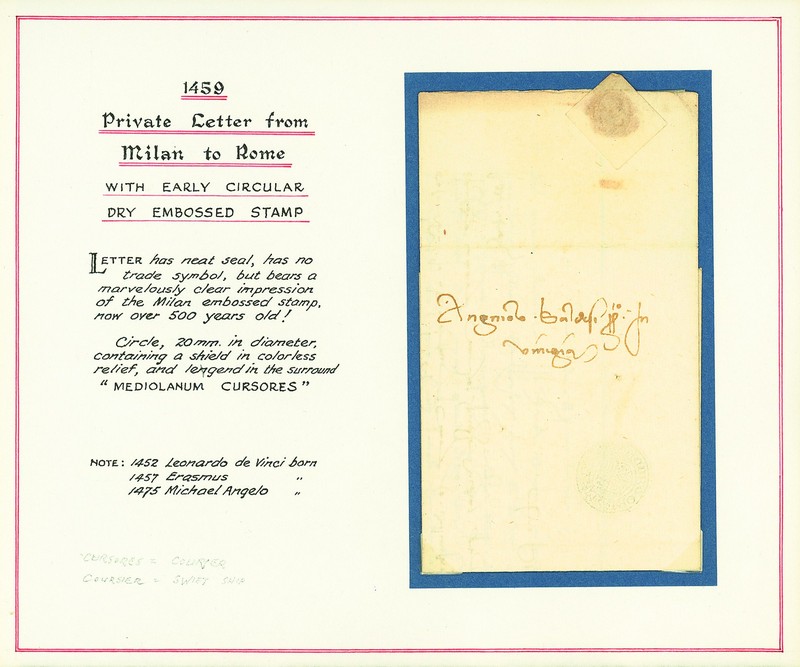 1459
Private Letter from
Milan to Rome
WITH EARLY CIRCULAR
DRY EMBOSSED STAMP
LETTER has neat seal, has no
trade symbol, but bears a
marvelously clear impression
of the Milan embossed stamp,
now over 500 years old!
Circle, 20mm. in diameter,
containing a shield in colorless
relief, and lengend in the surround
"MEDIOLANUM CURSORES"
NOTE: 1452 Leonardo de Vinci born
1457 Erasmus "
1475 Michael Angelo "
CURSORES = COURIER
COURSIER = SWIFT SHIP
In